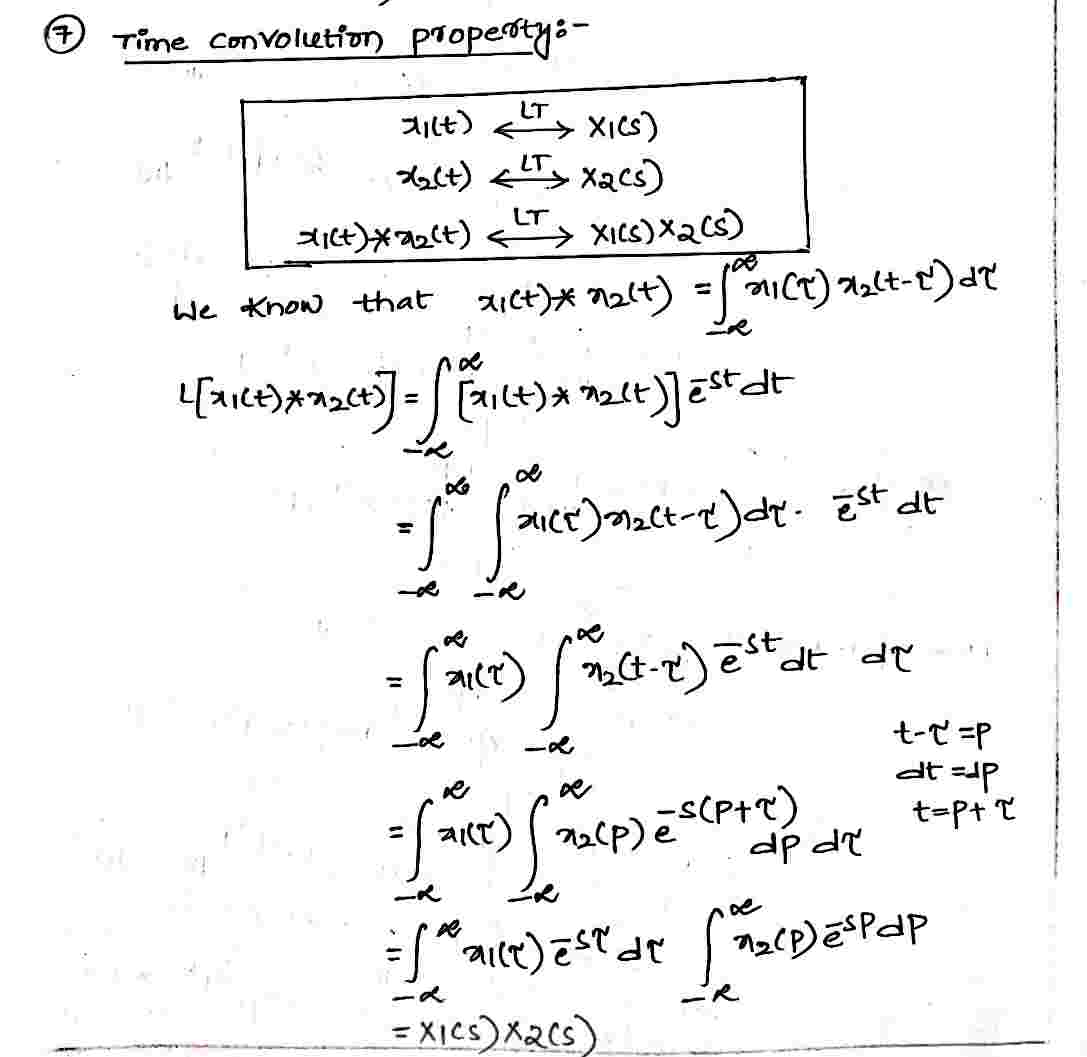 ⑦ Time convolution property:-
x1(t) ⟷LT X1(s)
x2(t) ⟷LT X2(s)
x1(t)*x2(t) ⟷LT X1(s)X2(s)
We know that x1(t)* x2(t) = ∫_{-∞}^{∞} x1(τ) x2(t-τ) dτ
L[x1(t)*x2(t)] = ∫_{-∞}^{∞} [x1(t)* x2(t)] e^{-st} dt
= ∫_{-∞}^{∞} ∫_{-∞}^{∞} x1(τ) x2(t-τ) dτ. e^{-st} dt
= ∫_{-∞}^{∞} x1(τ) ∫_{-∞}^{∞} x2(t-τ) e^{-st} dt dτ
t-τ=p
dt=dp
t=p+τ
= ∫_{-∞}^{∞} x1(τ) ∫_{-∞}^{∞} x2(p) e^{-s(p+τ)} dp dτ
= ∫_{-∞}^{∞} x1(τ) e^{-sτ} dτ ∫_{-∞}^{∞} x2(p) e^{-sp} dp
= X1(s) X2(s)